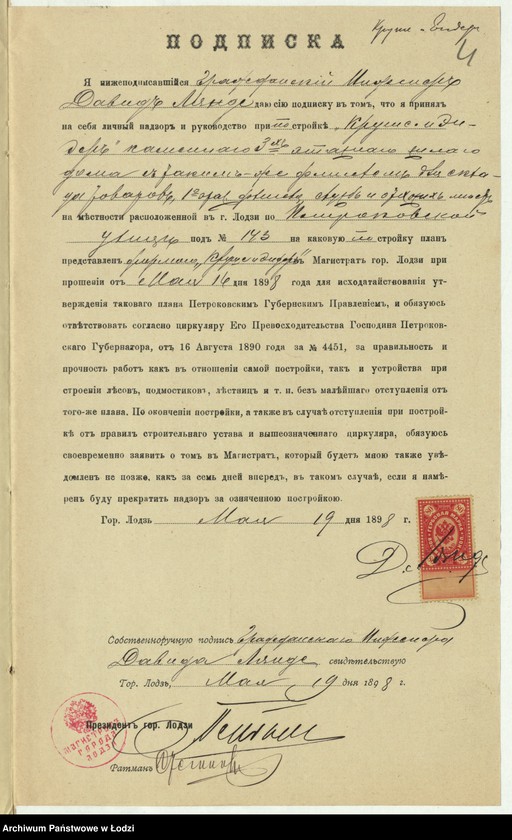 Крушъ и Эндеръ
4
ПОДПИСКА
Я нижеподписавшійся Гражданскій Инженеръ
Давидъ Ляндe даю сію подписку въ томъ, что я принялъ
на себя личный надзоръ и руководство при постройкѣ „Крушъ и Эн-
деръ" каменнаго 3хъ этажнаго жилаго
дома съ такимъ-же флигелемъ, для скла-
да товаровъ, 1о этаж. флигеля,
на мѣстности расположенной въ г. Лодзи по Петроковской
улицѣ подъ № 143 на каковую постройку планъ
представленъ фирмою „Крушъ и Эндеръ" въ Магистратъ гор. Лодзи при
прошеніи отъ Мая 16 дня 1898 года для исходатайствованія ут-
вержденія таковаго плана Петроковскимъ Губернскимъ Правленіемъ, и обязуюсь
отвѣтствовать согласно циркуляру Его Превосходительства Господина Петроков-
скаго Губернатора, отъ 16 Августа 1890 года за № 4451, за правильность и
прочность работъ какъ въ отношеніи самой постройки, такъ и устройства при
строеніи лѣсовъ, подмостиковъ, лѣстницъ и т. п. безъ малѣйшаго отступленія отъ
того-же плана. По окончѣніи постройки, а также въ случаѣ отступленія при построй-
кѣ отъ правилъ строительнаго устава и вышеозначеннаго циркуляра, обязуюсь
своевременно заявить о томъ въ Магистратъ, который будетъ мною также увѣ-
домленъ не позже, какъ за семь дней впередъ, въ такомъ случаѣ, если я намѣ-
ренъ буду прекратить надзоръ за означенною постройкою.
Гор. Лодзь Мая 19 дня 1898 г.
Д. Ляндe
Собственноручную подпись Гражданскаго Инженера
Давида Ляндe свидѣтельствую
Гор. Лодзь, Мая 19 дня 1898 г.
Президентъ гор. Лодзи
МАГИСТРАТЪ ГОРОДА ЛОДЗИ
Ратманъ
Archiwum Państwowe w Łodzi